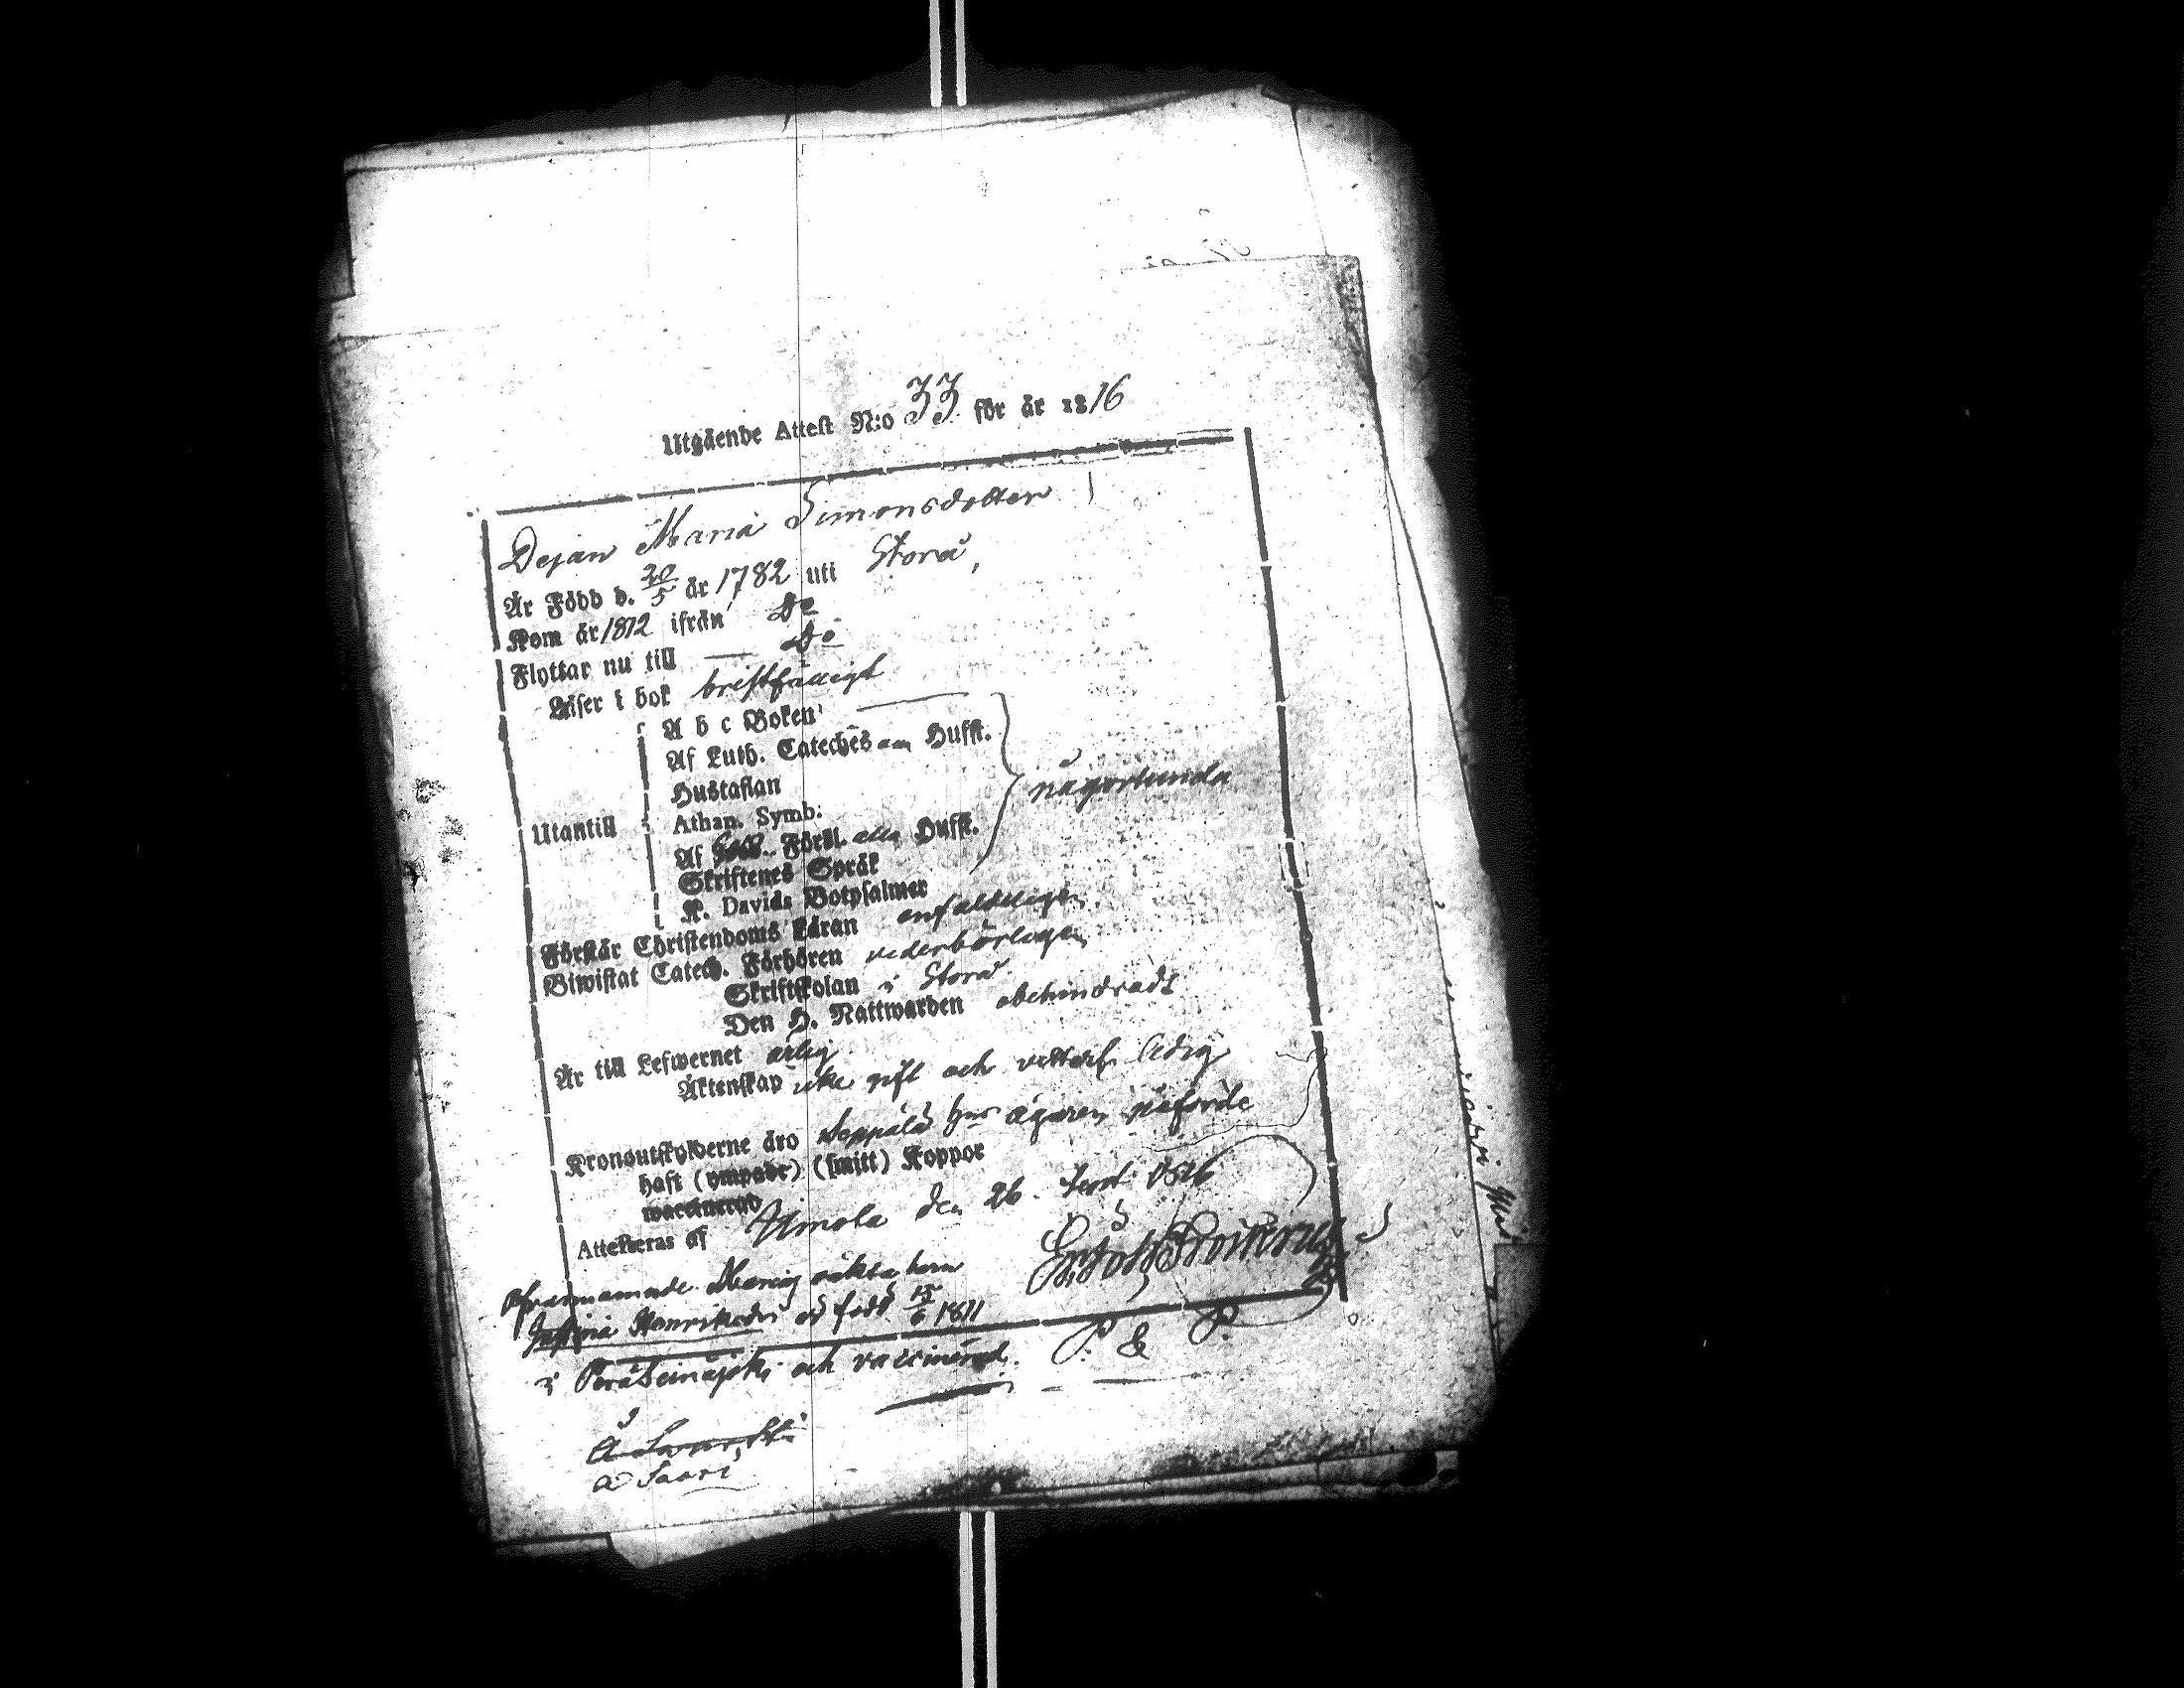 Utgående Attest N:o 33 för år 1816
Dejan Maria Simonsdotter
Är Född d. 20/5 år 1782 uti Storå,
Kom år 1812 ifrån Do
Flyttar nu till — Do
Läser i bok bristfälligt
A b c Boken
Af Luth. Cateches Hufst.
Hustaflan
Athan. Symb:
Utantill
Af Förkl. alla Hufst.
Skriftenes Språk
K. Davids Botpsalmer
någorlunda
Förstår Christendoms Läran enfaldeligen
Biwistat Catech. Förhören vederbörligen
Skriftskolan i Storå
Den H. Nattwarden obehindradt
Är till Lefwernet ärlig
Äktenskap icke gift och ledig
Kronoutskylderne äro Seppälä ägaren påförde
haft (ympade) (smitt) Koppor
waccinerad
Attesteras af Ilmola den 26. 1816
Ofvannamnde Marias oäkta barn
Henriksdr är född 15/6 1811
i Peräseinäjoki och vaccinerad.
P. & P.
å Saari